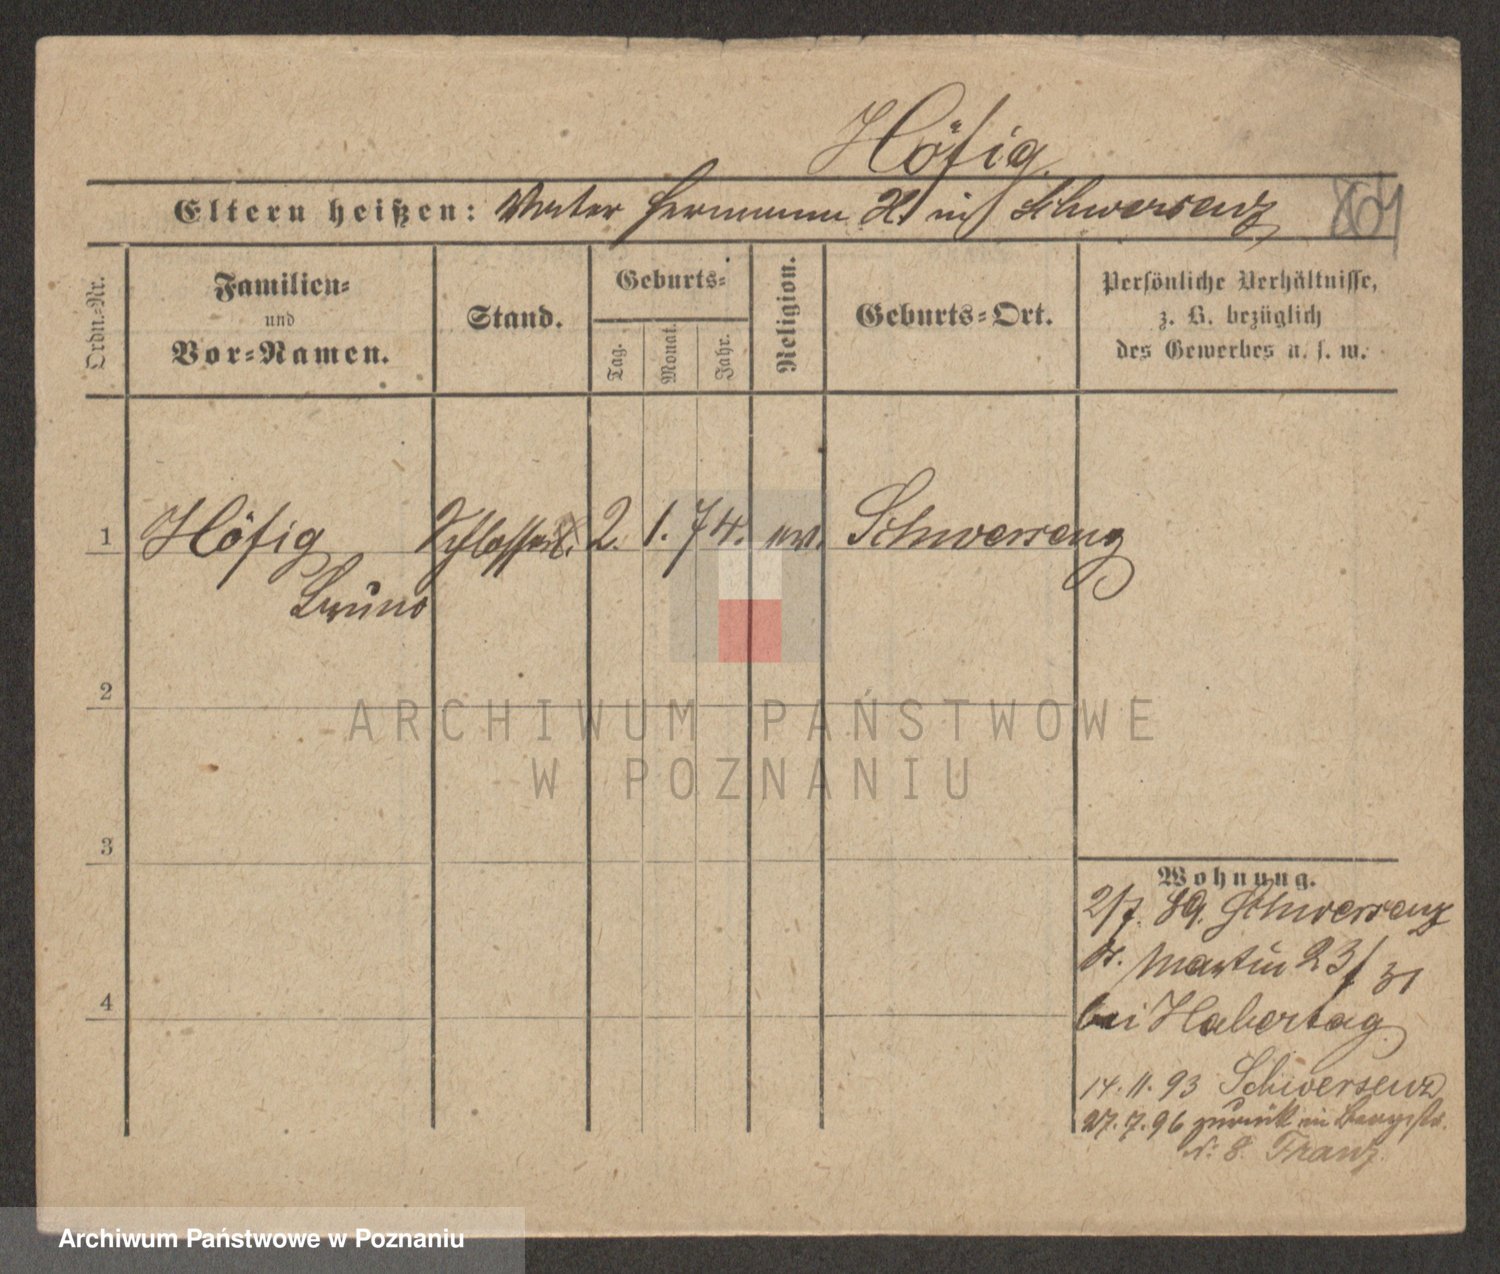 Höfig.
Eltern heißen: Vater Hermann H. in Schwersenz
Ordn.-Nr.
Familien-
und
Vor-Namen.
Stand.
Geburts-
Tag.
Monat.
Jahr.
Religion.
Geburts-Ort.
Persönliche Verhältnisse,
z. B. bezüglich
des Gewerbes u. s. w.
1 Höfig Schlosser 2. 1. 74. ev. Schwersenz
Bruno
2
3
4
Wohnung.
2/7. 89. Schwersenz
St. Martin 23/31
bei Habertag.
14. 11. 93 Schwersenz
27. 7. 96 zurück in Bergstr.
N: 8. Franz.
ARCHIWUM PAŃSTWOWE
W POZNANIU
Archiwum Państwowe w Poznaniu